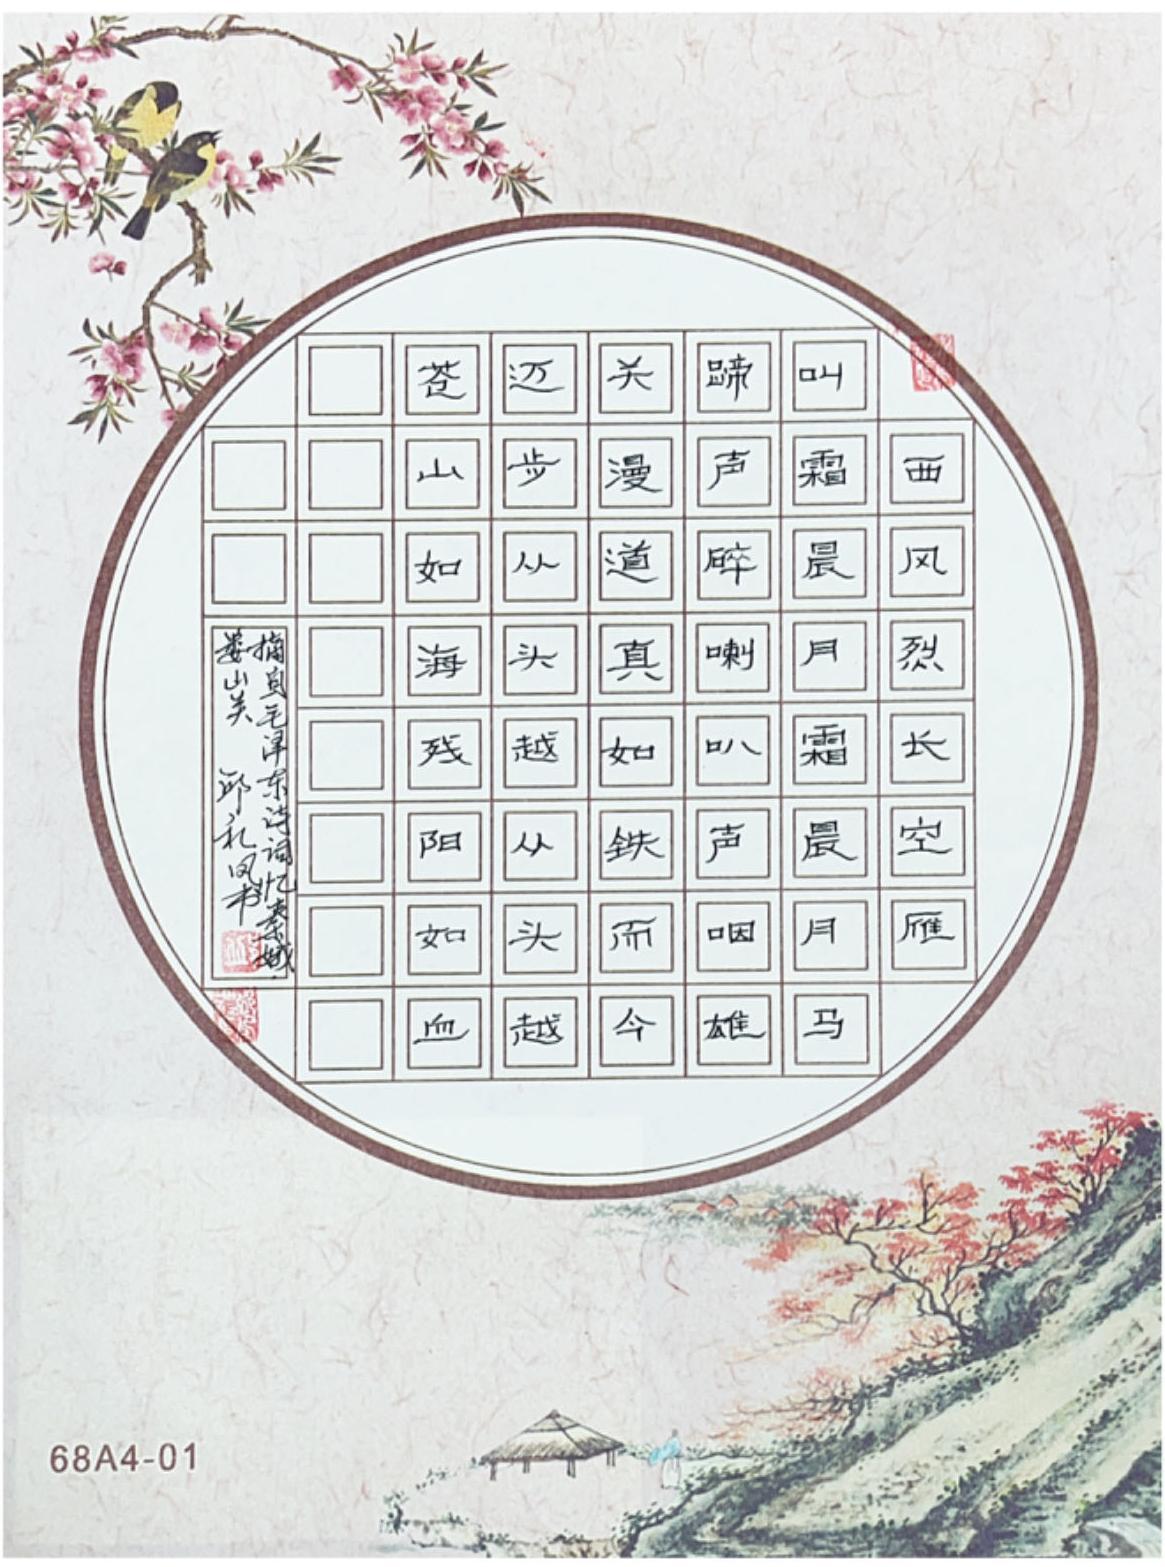 西风烈长空雁
叫霜晨月霜晨月马
蹄声碎喇叭声咽雄
关漫道真如鉄而今
迈步从头越从头越
苍山如海残阳如血
摘自毛泽东诗词忆秦娥
娄山关 邱礼凤书
68A4-01